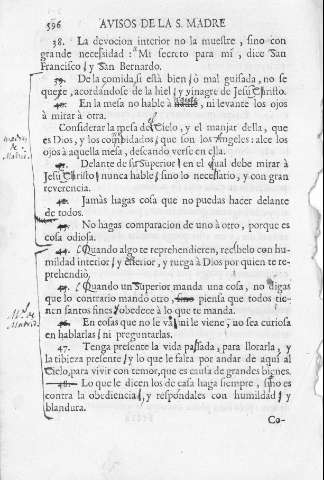 596 AVISOS DE LA S. MADRE
38. La devocion interior no la muestre, sino con
grande necessidad: Mi secreto para mì, dice San
Francisco, y San Bernardo.
39. De la comida, si està bien, ò mal guisada, no se
quexe, acordandose de la hiel, y vinagre de Jesu-Christo.
40. En la mesa no hable à nadie, ni levante los ojos
à mirar à otra.
Considerar la mesa del Cielo, y el manjar della, que
es Dios, y los combidados, que son los Angeles: alce los
ojos à aquella mesa, deseando verse en ella.
Delante de su Superior, en el qual debe mirar à
Jesu-Christo, nunca hable, sino lo necessario, y con gran
reverencia.
42. Jamàs hagas cosa que no puedas hacer delante
de todos.
43. No hagas comparacion de uno à otro, porque es
cosa odiosa.
44. Quando algo te reprehendieren, recibelo con hu-
mildad interior, y exterior, y ruega à Dios por quien te re-
prehendiò.
45. Quando un Superior manda una cosa, no digas
que lo contrario mandò otro, sino piensa que todos tie-
nen santos fines, y obedece à lo que te manda.
46. En cosas que no le và, ni le viene, no sea curiosa
en hablarlas, ni preguntarlas.
47. Tenga presente la vida passada, para llorarla, y
la tibieza presente, y lo que le falta por andar de aqui al
Cielo, para vivir con temor, que es causa de grandes bienes.
48. Lo que le dicen los de casa haga siempre, si no es
contra la obediencia, y respondales con humildad, y
blandura.
Co-